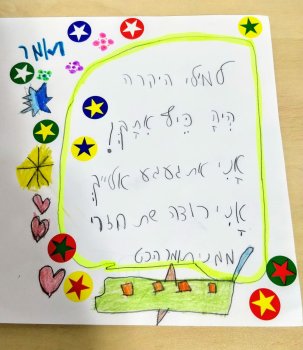 תומר
למילי היקרה
היה כיף אתך!
אני אתגעגע אלייך
אני רוצה שת חזרי
ממני תומר הכט